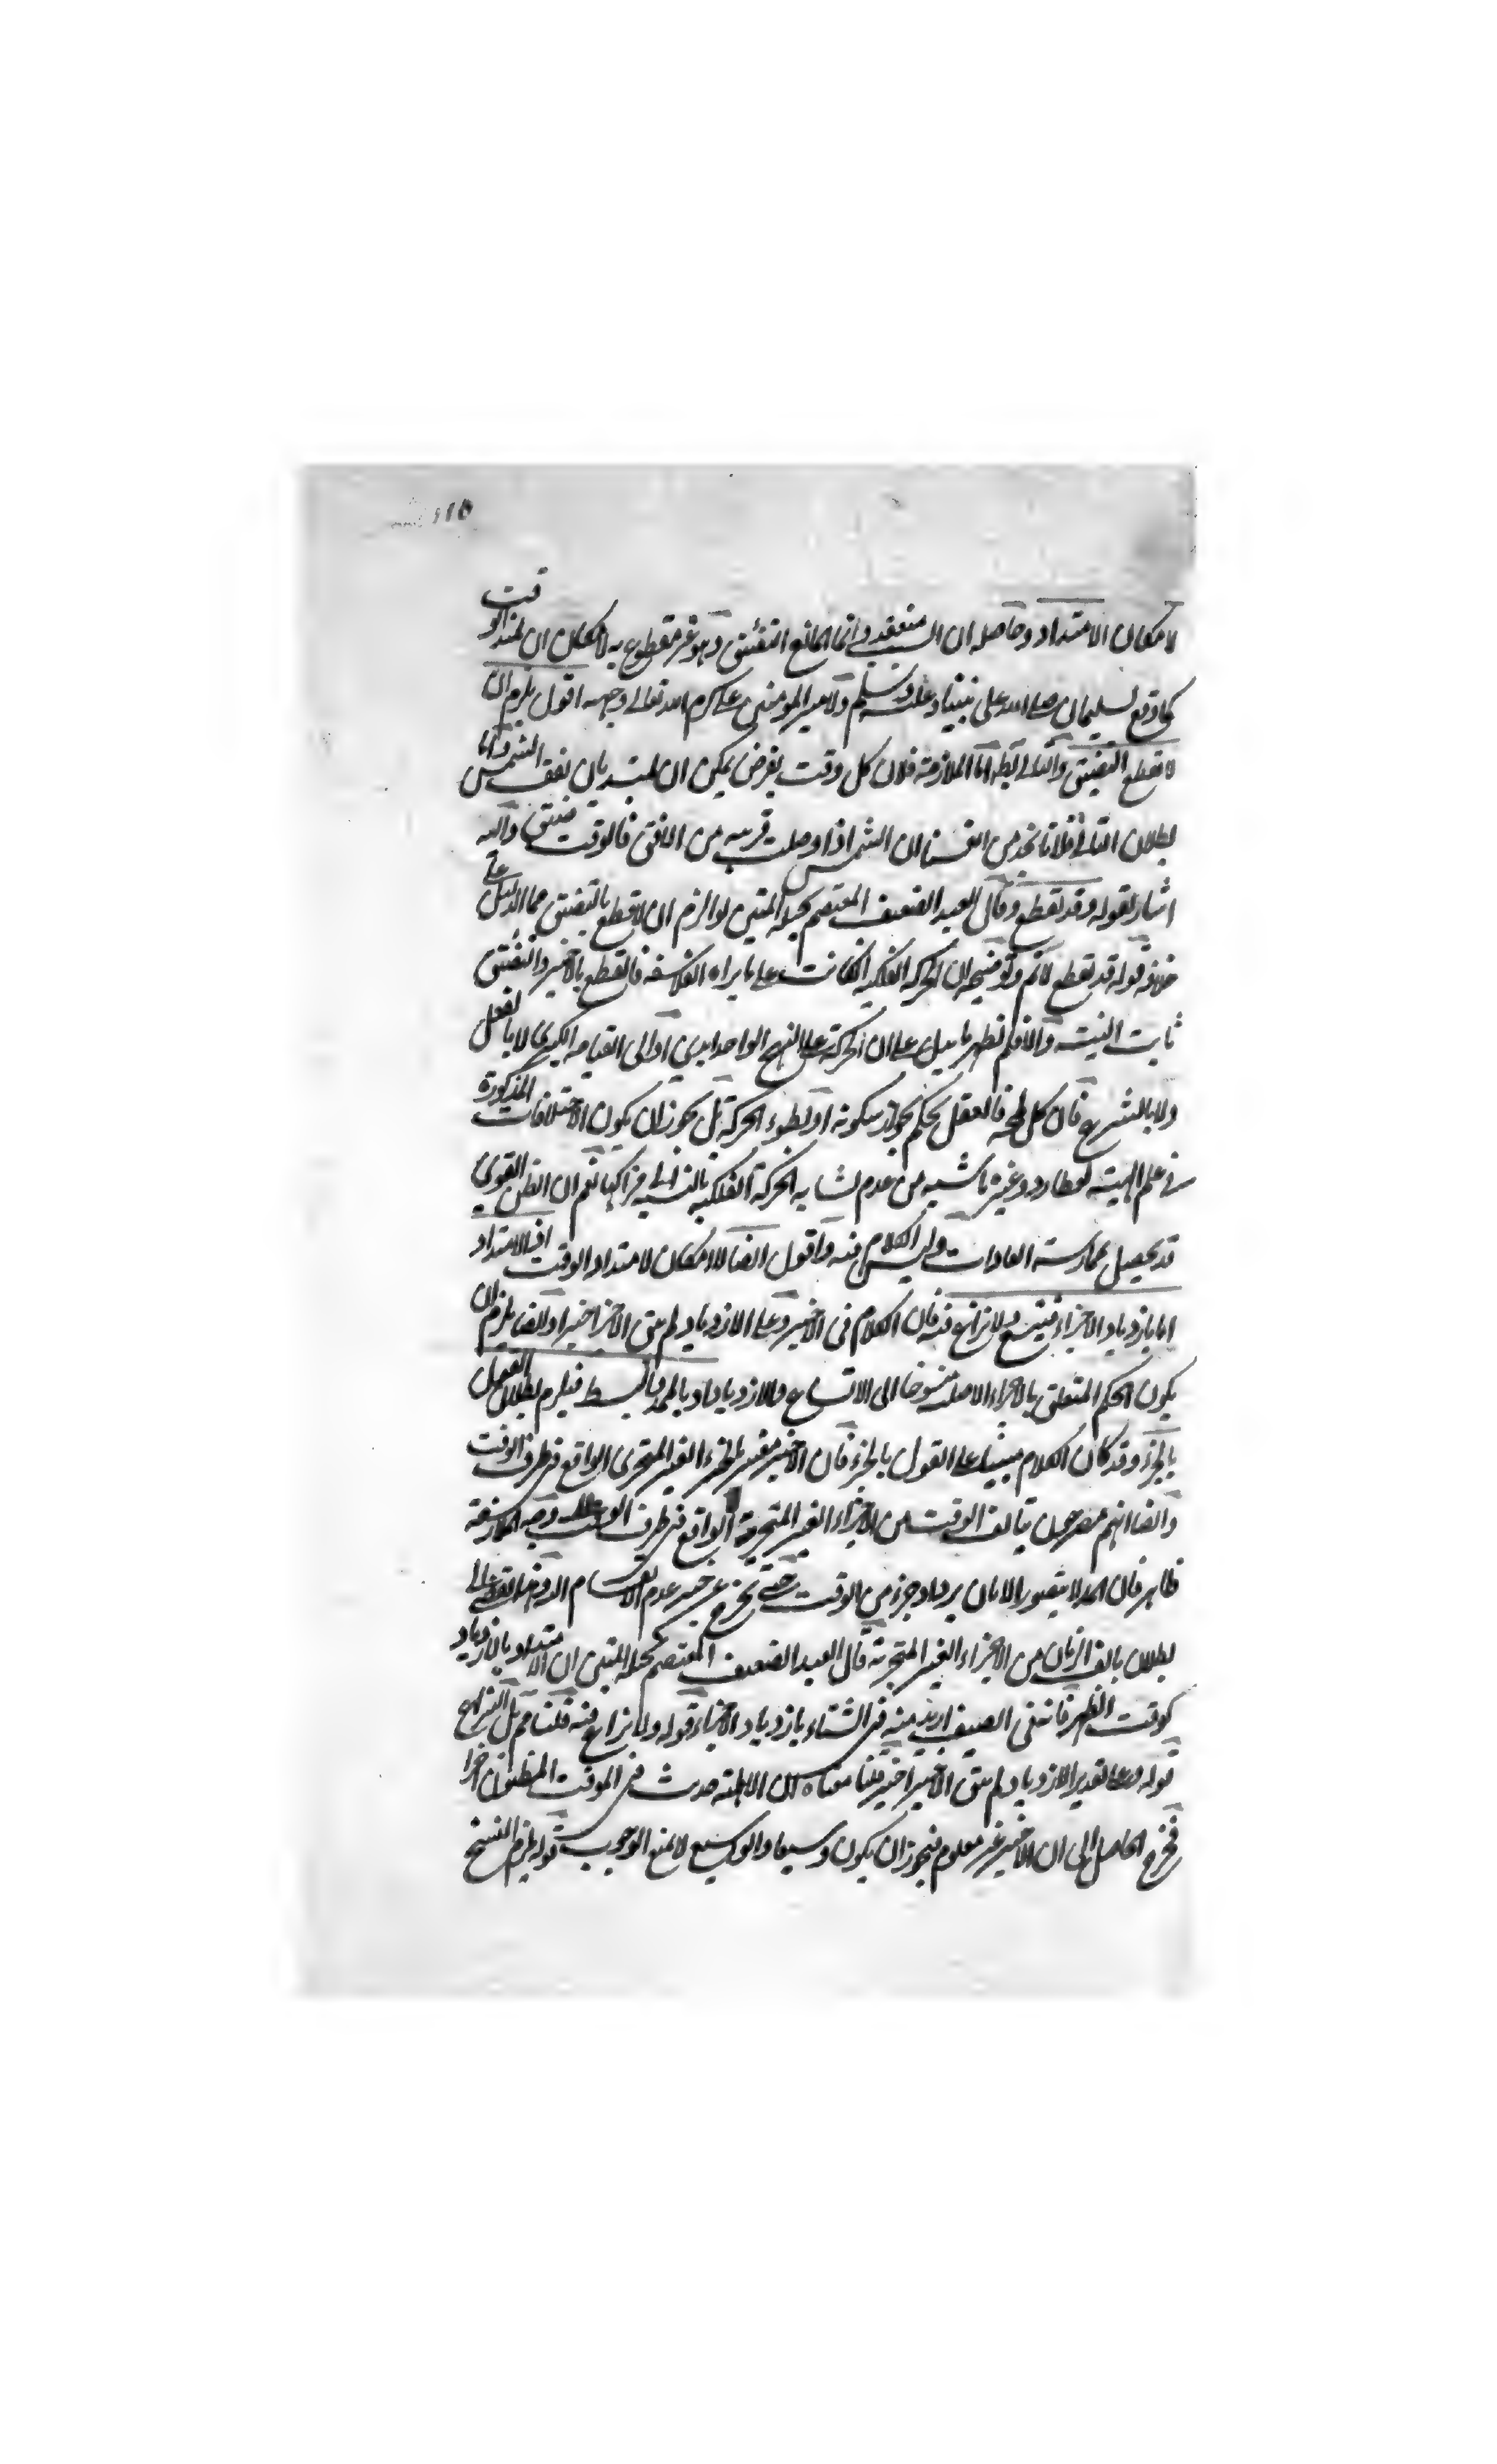 لامكان الامتداد وحاصله ان السبب منعقد وانما المانع التضيق وهو غير مقطوع به لامكان ان يمتد الوقت
كما وقع لسليمان صلى الله على نبينا وعليه وسلم ولامير المومنين على كرم الله تعالى وجهه اقول يلزم ان
لا نقطع التضيق والتالي بط اما الملازمة فلان كل وقت يفرض يمكن ان يمتد بان تقف الشمس واما
بطلان التالي فلانا نجد من انفسنا ان الشمس اذا وصلت قريبه من الافق فالوقت ضيق واليه
اشار بقوله وقد نقطع وقال العبد الضعيف المعتصم بحبله المتين لو الزم ان لا نقطع بالتضيق فما الدليل على
خلافه قوله قد نقطع لا نم وتوضيحه ان الحركة الفلكية ان كانت على ما يراه الفلاسفه فالقطع بالاخير والتضيق
ثابت البتة والا فلم نظهر ما يدل على ان الحركة على النهج الواحد ابدى او الى القيامة الكبرى لا بالعقل
ولا بالشرع فان كل لمحة فالعقل يحكم بجواز سكونه او بطوء الحركة بل يجوز ان يكون الاختلافات المذكورة
في علم الهيئة لعطارد وغيره ناشيه من عدم تشابه الحركة الفلكية بالنسبة الى مراكزها نعم ان الظن القوى
قد يحصل بممارسة العادات وليس الكلام فيه واقول ايضا لا امكان لامتداد الوقت اذ الامتداد
اما بازدياد الاجزاء فيتسع ولا نزاع فيه فان الكلام في الاخير وعلى الازدياد لم يبق الاخير اخيرا وايضا يلزم ان
يكون الحكم المتعلق بالاجزاء الاصلية منسوخا الى الاتساع والازدياد او بالمد والبسط فيلزم بطلان القول
بالجزء وقد كان الكلام مبنيا على القول بالجزء فان الاخير مفسر بالجزء الغير المتجزى الواقع في طرف الوقت
وايضا انهم مصرحون بتألف الوقت من الاجزاء الغير المتجزية الواقع في طرف الوقت وجه الملازمة
ظاهر فان المد لا يتصور الا بان يزداد جزء من الوقت حتى يخرج عن حيز عدم الانقسام
بطلان تالف الزمان من الاجزاء الغير المتجزية قال العبد الضعيف المعتصم بحبله المتين ان الامتداد بالازدياد
كوقت الظهر فانه في الصيف ازيد منه في الشتاء بازدياد الاجزاء قوله ولا نزاع فيه قلنا مم بل النزاع
قوله وعلى تقدير الازدياد لم يبق الاخير اخيرا قلنا معناه ان الاهلية حدث في الوقت المظنون اخرا
فخرج الحاصل الى ان الاخير غير معلوم فيجوز ان يكون وسيعا والوسيع لا يمنع الوجوب قوله يلزم النسخ